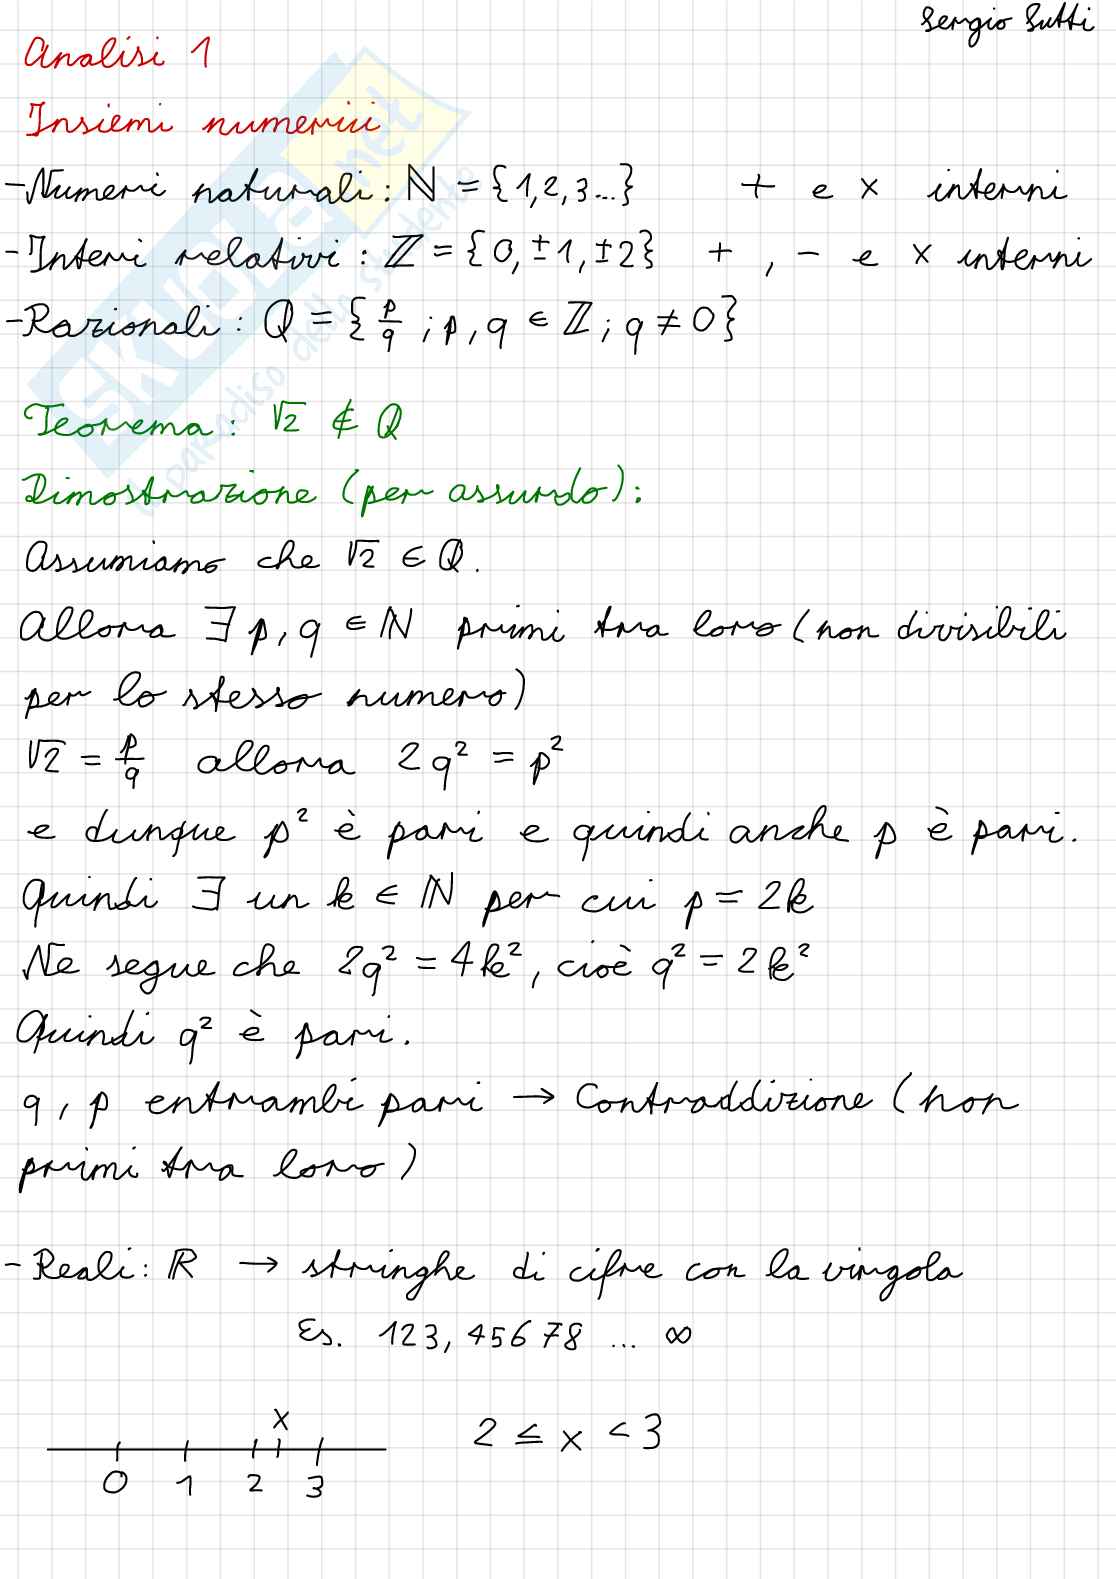 Sergio Sutti
Analisi 1
Insiemi numerici
- Numeri naturali: ℕ = {1, 2, 3 ...} + e × interni
- Interi relativi: ℤ = {0, ±1, ±2} +, - e × interni
- Razionali: Q = {p/q ; p, q ∈ ℤ ; q ≠ 0}
Teorema: √2 ∉ Q
Dimostrazione (per assurdo):
Assumiamo che √2 ∈ Q.
Allora ∃ p, q ∈ ℕ primi tra loro (non divisibili
per lo stesso numero)
√2 = p/q allora 2q² = p²
e dunque p² è pari e quindi anche p è pari.
Quindi ∃ un k ∈ ℕ per cui p = 2k
Ne segue che 2q² = 4k², cioè q² = 2k²
Quindi q² è pari.
q, p entrambi pari → Contraddizione (non
primi tra loro)
- Reali: ℝ → stringhe di cifre con la virgola
Es. 123,45678 ... ∞
x
2 ≤ x < 3
0 1 2 3
SKUOLA.net
il paradiso dello studente